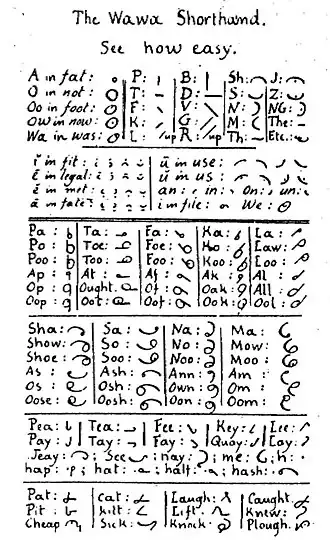 The Wawa Shorthand.
See how easy.
A in fat: P: B: Sh: J:
O in not: T: D: S: Z:
Oo in foot: F: V: N: NG:
OW in now: K: G: M: The:
Wa in was: L: /up R: /up Th: Etc:
ĭ in fit: ū in use:
ē in legal: ŭ in us:
ĕ in met: an: in: On: un:
ā in fate: i in file: We:
Pa: Ta: Fa: Ka: La:
Po: Toe: Foe: Ko: Law:
Poo: Too: Foo: Koo: Loo:
Ap: At: Af: Ak: Al:
Op: Ought: Of: Oak: All:
Oop: Oot: Oof: Ook: Ool:
Sha: Sa: Na: Ma:
Show: So: No: Mow:
Shoe: Soo: Noo: Moo:
As: Ash: Ann: Am:
Os: Osh: Own: Om:
Oose: Oosh: Oon: Oom:
Pea: Tea: Fee: Key: Lee:
Pay: Tay: Fay: Quay: Lay:
Jeay: See: nay: me: h:
hap: hat: half: hash:
Pat: Cat: Laugh: Caught.
Pit: kilt: Lift. Knew:
Cheap Sick: Knock: Plough.